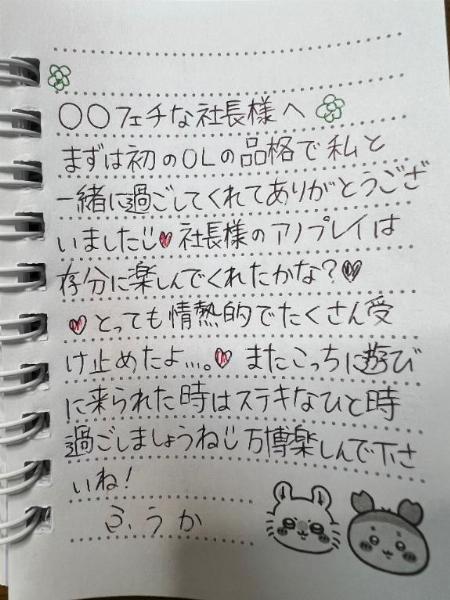 〇〇フェチな社長様へ
まずは初のOLの品格で私と
一緒に過ごしてくれてありがとうござ
いました♥社長様のアノプレイは
存分に楽しんでくれたかな?♥
♥とっても情熱的でたくさん受
け止めたよ...。♥またこっちに遊び
に来られた時はステキなひと時
過ごしましょうね 万博楽しんで下さ
いね!
ふうか